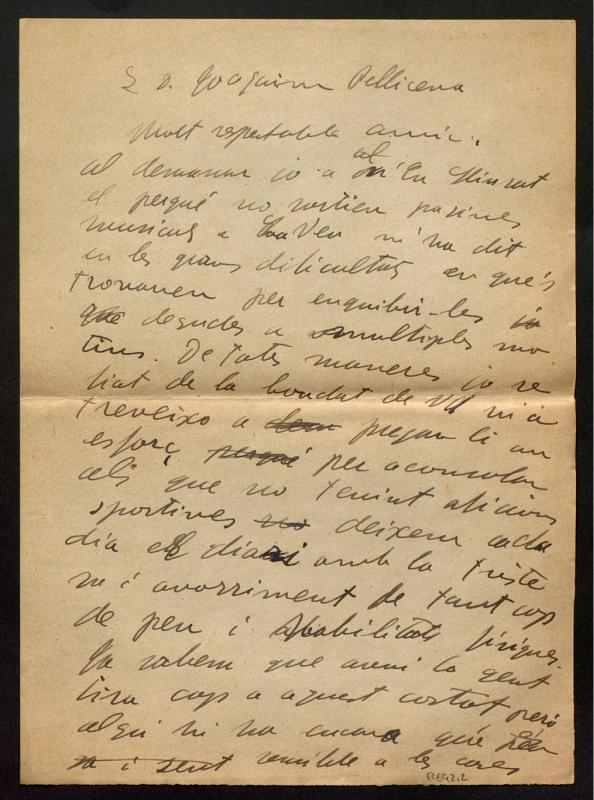 S. D. Joaquim Pellicena
Molt respectable amic:
al demanar jo a al n'En Llinrat
el perqué no sortien pagines
musicals a La Veu m'ha dit
en les grans dificultats en qué's
trovaven per enquibir-les ja
que degudes a multiples mo
tius. De totes maneres jo re
fiat de la bondat de Vd m'a
treveixo a dem pregar li un
esforç perqué per aconsolar
als que no tenint aficions
sportives no deixem cada
dia el diari amb la triste
sa i avorriment de tant cop
de peu i habilitats fisiques.
Ja sabem que avui la gent
tira cap a aquest costat però
algú hi ha encara qué pen
sa i sent sensible a les coses
R6922